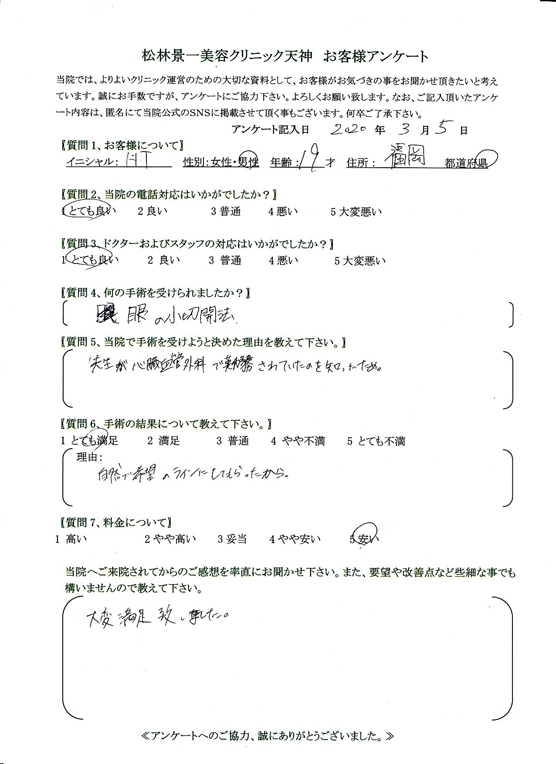 松林景一美容クリニック天神 お客様アンケート
当院では、よりよいクリニック運営のための大切な資料として、お客様がお気づきの事をお聞かせ頂きたいと考え
ています。誠にお手数ですが、アンケートにご協力下さい。よろしくお願い致します。なお、ご記入頂いたアンケ
ート内容は、匿名にて当院公式のSNSに掲載させて頂く事もございます。何卒ご了承下さい。
アンケート記入日 2020 年 3 月 5 日
【質問1、お客様について】
イニシャル: HT 性別:女性・男性 年齢: 19 才 住所: 福岡 都道府県
【質問2、当院の電話対応はいかがでしたか?】
1 とても良い 2 良い 3 普通 4 悪い 5 大変悪い
【質問3、ドクターおよびスタッフの対応はいかがでしたか?】
1 とても良い 2 良い 3 普通 4 悪い 5 大変悪い
【質問4、何の手術を受けられましたか?】
眼の小切開法
【質問5、当院で手術を受けようと決めた理由を教えて下さい。】
先生が心臓血管外科で勤務されていたのを知ったため。
【質問6、手術の結果について教えて下さい。】
1 とても満足 2 満足 3 普通 4 やや不満 5 とても不満
理由:
自然で希望のラインにしてもらったから。
【質問7、料金について】
1 高い 2 やや高い 3 妥当 4 やや安い 5 安い
当院へご来院されてからのご感想を率直にお聞かせ下さい。また、要望や改善点など些細な事でも
構いませんので教えて下さい。
大変満足致しました。
≪アンケートへのご協力、誠にありがとうございました。≫